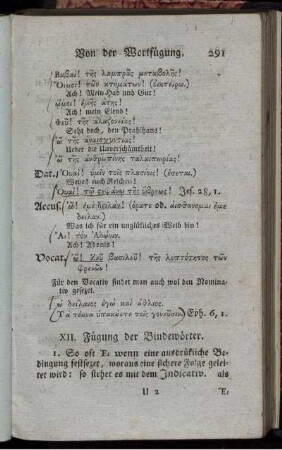 Von der Wortfügung. 291
Βαβαί! τῆς λαμπρᾶς μεταβολῆς!
Οἴμοι! τῶν κτημάτων!
Ach! Mein Hab und Gut!
ὤμοι! ἐμῆς ἄτης!
Ach! mein Elend!
Φεῦ! τῆς ἀλαζονείας!
Seht doch, den Prahlhans!
ὦ τῆς ἀναισχυντίας!
Ueber die Unverschämtheit!
ὦ τῆς ἀνθρωπίνης ταλαιπωρίας!
Dat. Οὐαί! ὑμῖν τοῖς πλουσίοις! (ἔσεται.)
Weh euch Reichen!
Οὐαί! τῷ στεφάνῳ τῆς ὕβρεως! Jes. 28, 1.
Accus. ὦ! ἐμὲ δειλάν! (ὁρᾶτε od. αἰσθάνομαι ἐμὲ
δειλαν.)
Was ich für ein unglükliches Weib bin!
Αἲ! τὸν Ἄδωνιν.
Ach! Adonis!
Vocat. ὦ! Ζεῦ βασιλεῦ! τῆς λεπτότητος τῶν
φρενῶν!
Für den Vocativ findet man auch wol den Nomina-
tiv gesezt.
ὦ δείλαιος ἐγὼ καὶ ἄθλιος.
(Τὰ τέκνα ὑπακούετε τοῖς γονεῦσιν) Eph. 6, 1.
XII. Fügung der Bindewörter.
1. So oft Ει wenn eine ausdrükliche Be-
dingung festsezet, woraus eine sichere Folge gelei-
tet wird: so stehet es mit dem Indicativ. als
U 2 Ει